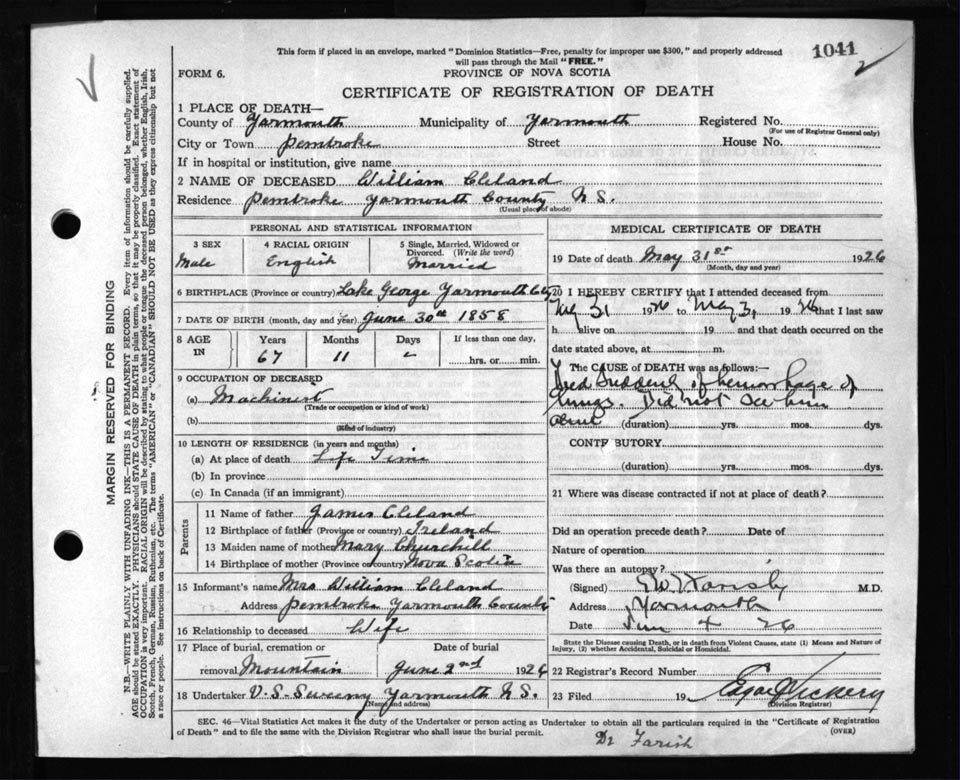 This form if placed in an envelope, marked "Dominion Statistics—Free, penalty for improper use $300," and properly addressed
will pass through the Mail "FREE."
1041
2
FORM 6.
PROVINCE OF NOVA SCOTIA
CERTIFICATE OF REGISTRATION OF DEATH
MARGIN RESERVED FOR BINDING
N.B.—WRITE PLAINLY WITH UNFADING INK—THIS IS A PERMANENT RECORD. Every item of information should be carefully supplied.
AGE should be stated EXACTLY. PHYSICIANS should STATE CAUSE OF DEATH in plain terms, so that it may be properly classified. Exact statement of
OCCUPATION is very important. RACIAL ORIGIN will be described by stating to what people or tongue the deceased person belonged, whether English, Irish,
Scotch, French, German, Russian, Ruthenian, etc. The terms "AMERICAN" or "CANADIAN" SHOULD NOT BE USED as they express citizenship but not
a race or people. See instructions on back of Certificate.
1 PLACE OF DEATH—
County of Yarmouth Municipality of Yarmouth Registered No.
(For use of Registrar General only)
City or Town Pembroke Street House No.
If in hospital or institution, give name
2 NAME OF DECEASED William Cleland
Residence Pembroke Yarmouth County N S.
(Usual place of abode)
PERSONAL AND STATISTICAL INFORMATION
3 SEX 4 RACIAL ORIGIN 5 Single, Married, Widowed or
Divorced. (Write the word)
Male English Married
6 BIRTHPLACE (Province or country) Lake George Yarmouth Cty
7 DATE OF BIRTH (month, day and year) June 30th 1858
8 AGE IN Years Months Days If less than one day,
67 11 - hrs. or min.
9 OCCUPATION OF DECEASED
(a) Machinist
(Trade or occupation or kind of work)
(b)
(Kind of industry)
10 LENGTH OF RESIDENCE (in years and months)
(a) At place of death Life Time
(b) In province
(c) In Canada (if an immigrant)
Parents
11 Name of father James Cleland
12 Birthplace of father (Province or country) Ireland
13 Maiden name of mother Mary Churchill
14 Birthplace of mother (Province or country) Nova Scotia
15 Informant's name Mrs William Cleland
Address Pembroke Yarmouth County
16 Relationship to deceased Wife
17 Place of burial, cremation or Date of burial
removal Mountain June 2nd 1926
18 Undertaker V. S. Sweeny Yarmouth N S.
(Name and address)
MEDICAL CERTIFICATE OF DEATH
19 Date of death May 31st 1926
(Month, day and year)
20 I HEREBY CERTIFY that I attended deceased from
May 31 1926 to May 31 1926 that I last saw
h alive on 19 and that death occurred on the
date stated above, at m.
The CAUSE of DEATH was as follows:—
Died Suddenly of hemorrhage of
lungs. Did not see him
alive (duration) yrs. mos. dys.
CONTRIBUTORY
(duration) yrs. mos. dys.
21 Where was disease contracted if not at place of death?
Did an operation precede death? Date of
Nature of operation
Was there an autopsy?
(Signed) Farish M.D.
Address Yarmouth
Date June 4 26
State the Disease causing Death, or in death from Violent Causes, state (1) Means and Nature of
Injury, (2) whether Accidental, Suicidal or Homicidal.
22 Registrar's Record Number
23 Filed 19 Edgar Vickery
(Division Registrar)
SEC. 46—Vital Statistics Act makes it the duty of the Undertaker or person acting as Undertaker to obtain all the particulars required in the "Certificate of Registration
of Death" and to file the same with the Division Registrar who shall issue the burial permit. (OVER)
Dr Farish